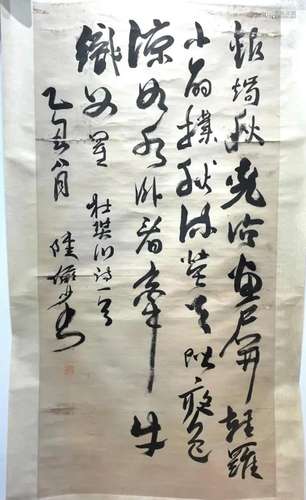 銀燭秋光冷畫屏輕羅
小扇撲流螢天階夜色
涼如水卧看牽牛
織女星 杜樊川詩一首
乙 月 陸儼少書